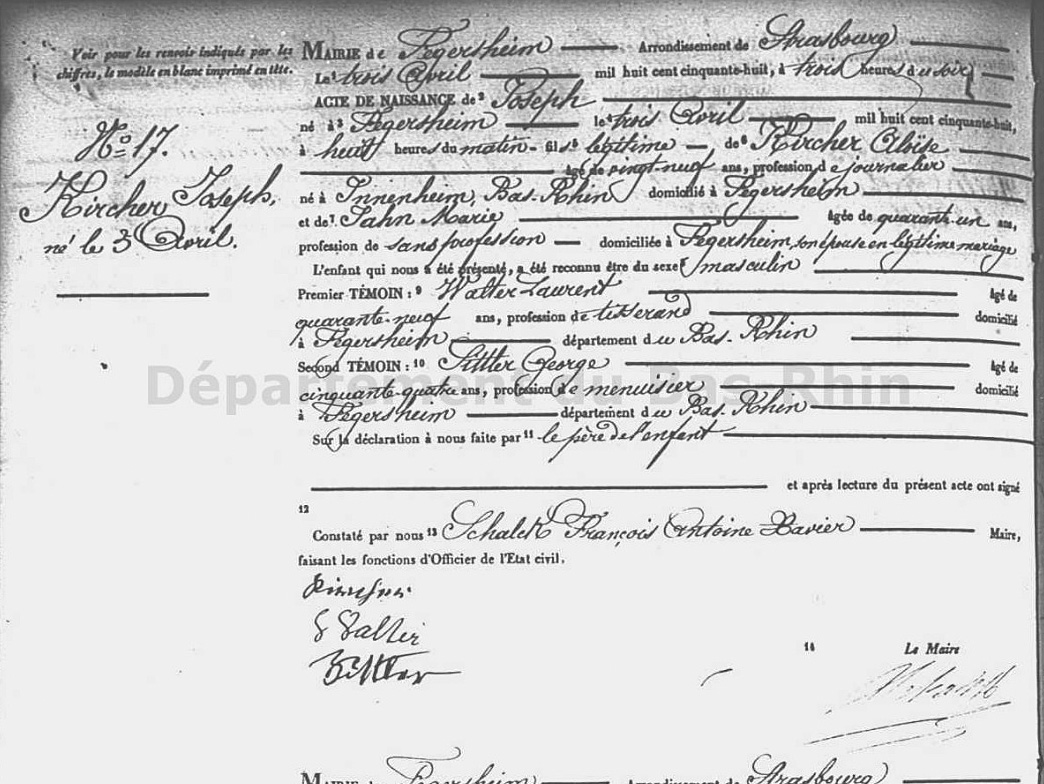 Voir pour les renvois indiqués par les
chiffres, le modèle en blanc imprimé en tête.
No 17.
Kircher Joseph,
né le 3 Avril.
MAIRIE de Fegersheim Arrondissement de Strasbourg
Le1 trois Avril mil huit cent cinquante-huit, à trois heures du soir
ACTE DE NAISSANCE de2 Joseph
né à3 Fegersheim le4 trois Avril mil huit cent cinquante-huit,
à huit heures du matin - fils5 légitime, de6 Kircher Aloïse
âgé de vingt neuf ans, profession de journalier
né à Innenheim, Bas-Rhin domicilié à Fegersheim
et de7 Jahn Marie âgée de quarante un ans,
profession de sans profession domiciliée à Fegersheim, son épouse en légitime mariage
L'enfant qui nous a été présenté, a été reconnu être du sexe8 masculin
Premier TÉMOIN : 9 Walter Laurent âgé de
quarante-neuf ans, profession de tisserand domicilié
à Fegersheim département du Bas-Rhin
Second TÉMOIN : 10 Sittler George âgé de
cinquante-quatre ans, profession de menuisier domicilié
à Fegersheim département du Bas-Rhin
Département du Bas-Rhin
Sur la déclaration à nous faite par 11 le père de l'enfant
et après lecture du présent acte ont signé
12
Constaté par nous 13 Schalck François Antoine Xavier Maire,
faisant les fonctions d'Officier de l'Etat civil.
Kircher
Sittler
14 Le Maire
MAIRIE de Fegersheim Arrondissement de Strasbourg